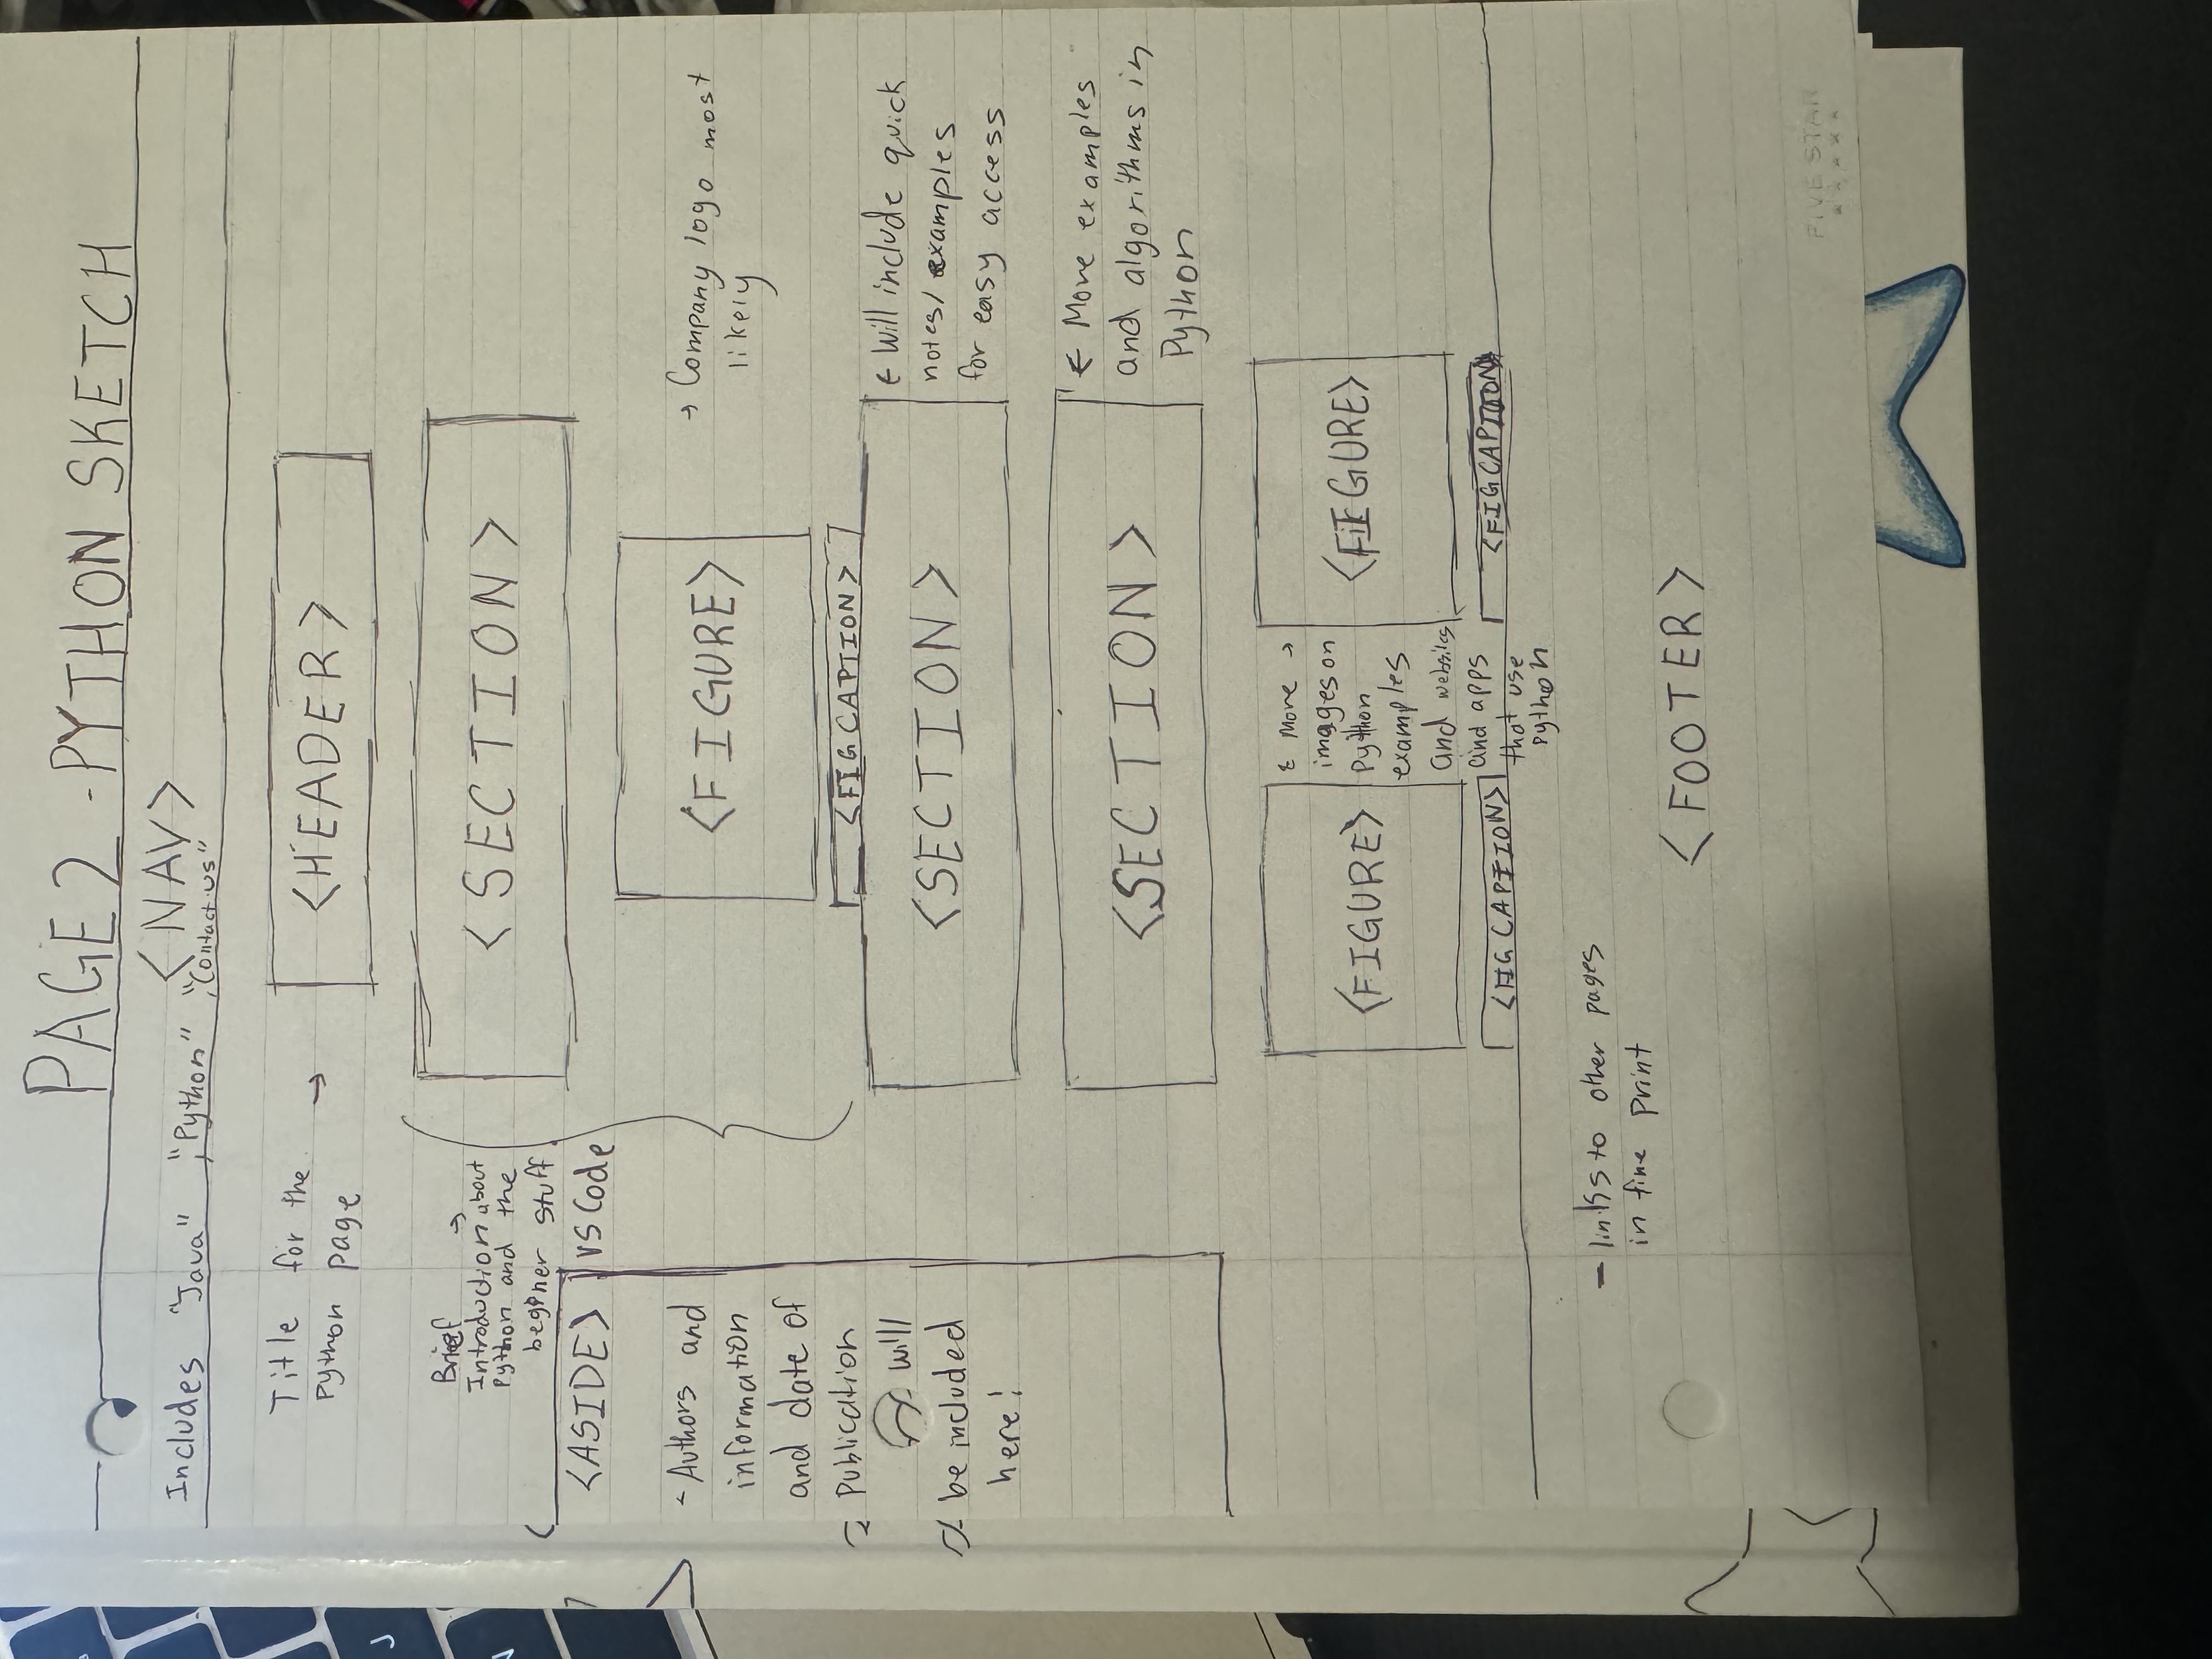 PAGE 2 - PYTHON SKETCH
<NAV>
Includes "Java" , "Python" , "Contact us"
Title for the
Python page
→ <HEADER>
Brief →
Introduction about
Python and the
beginner stuff
VS Code
<SECTION>
<ASIDE>
- Authors and
information
and date of
Publication
will
be included
here!
<FIGURE>
→ Company logo most
likely
<FIG CAPTION>
<SECTION>
← Will include quick
notes/ examples
for easy access
<SECTION>
← More examples
and algorithms in
Python
<FIGURE>
← More →
images on
Python
examples
and websites
and apps
that use
Python
<FIGURE>
<FIG CAPTION>
<FIG CAPTION>
- links to other pages
in fine print
<FOOTER>
FIVE STAR
J